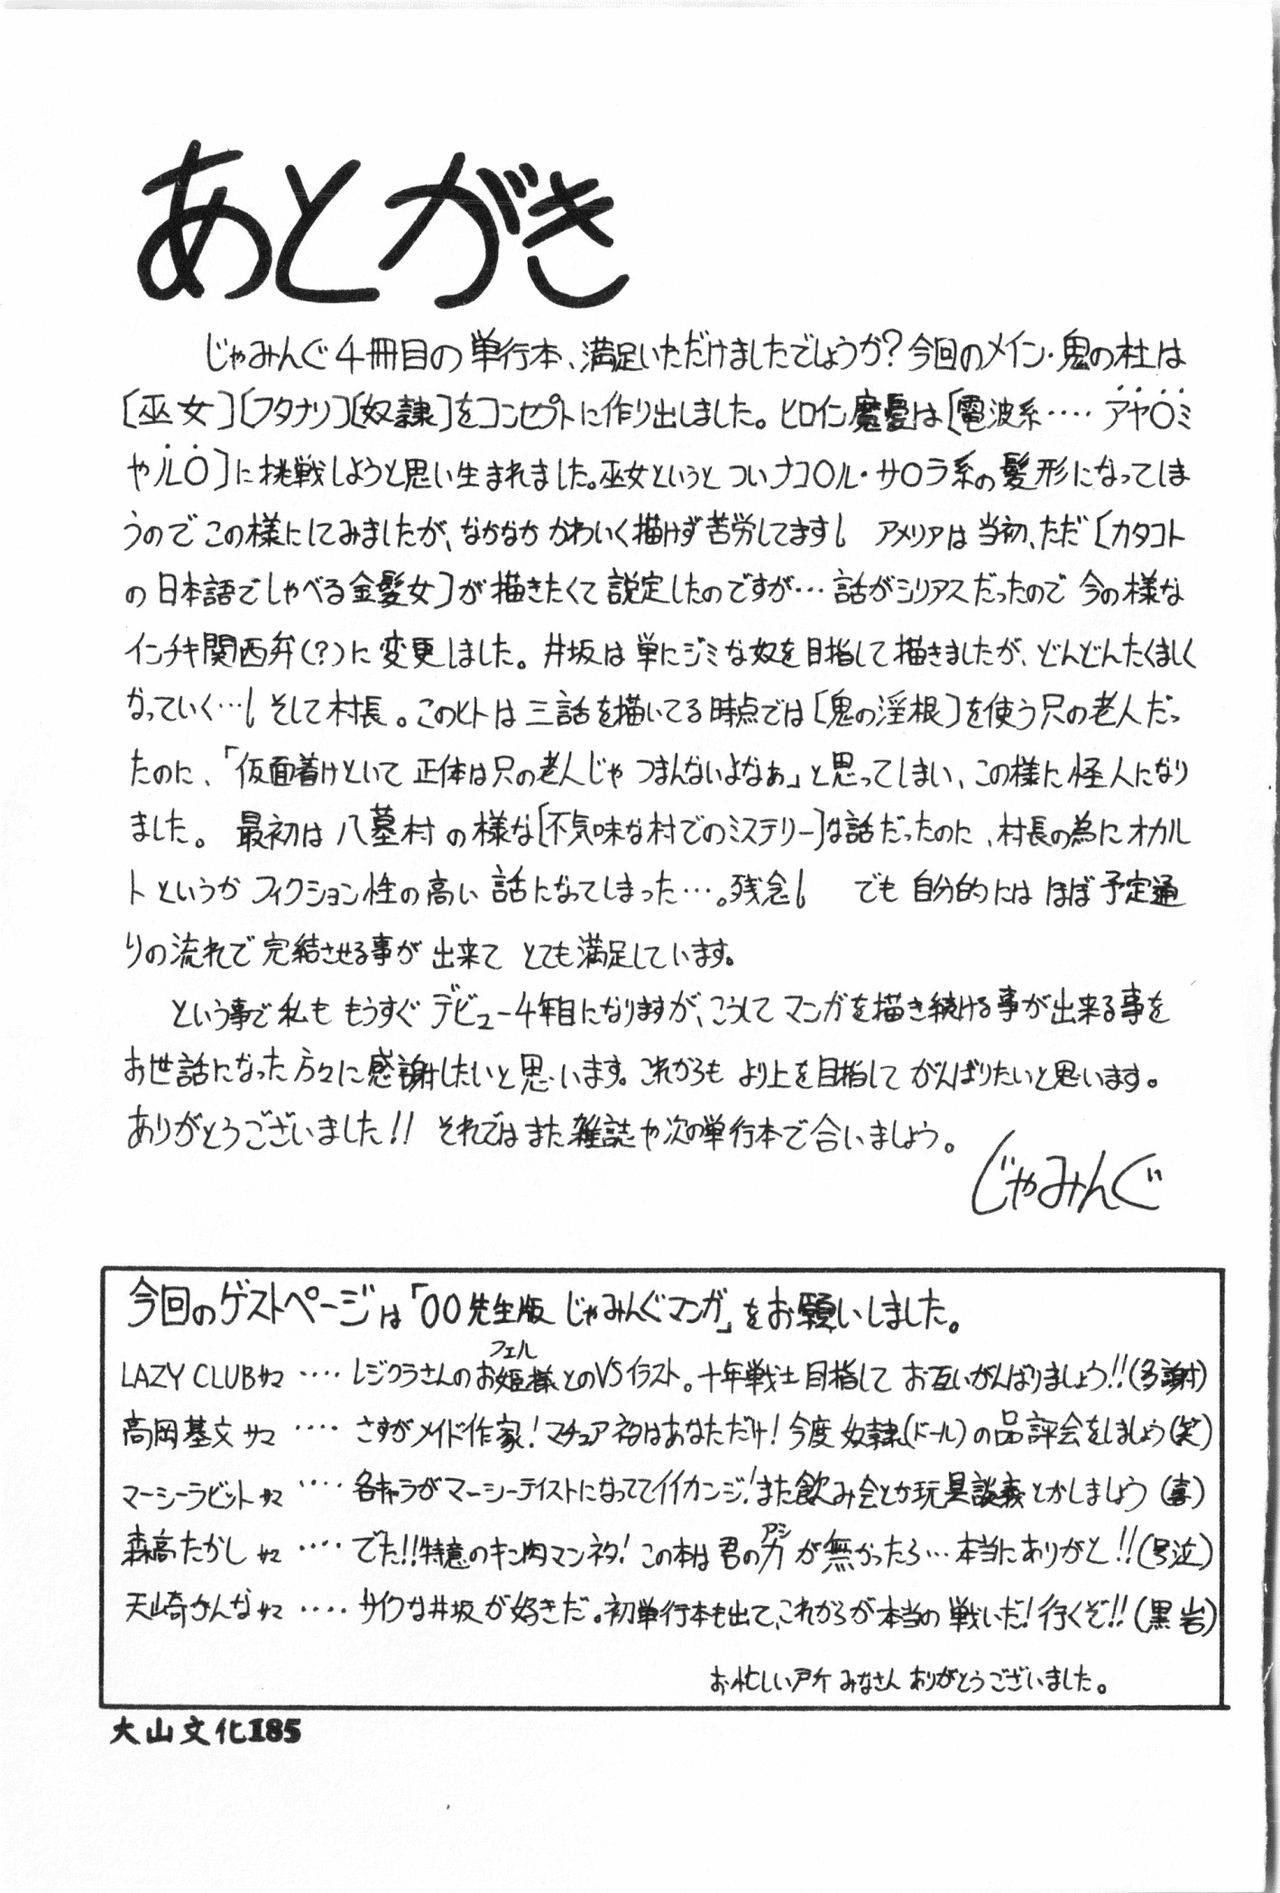 あとがき
じゃみんぐ4冊目の単行本、満足いただけましたでしょうか?今回のメイン・鬼の杜は
[巫女][フタナリ][奴隷]をコンセプトに作り出しました。ヒロイン魔憂は[電波系‥‥‥アヤ○ミ
やル○]に挑戦しようと思い生まれました。巫女というとついナコ○ル・サ○ラ系の髪形になってしま
うのでこの様にしてみましたが、なかなかかわいく描けず苦労してます! アメリアは当初、ただ[カタコト
の日本語でしゃべる金髪女]が描きたくて説定したのですが…話がシリアスだったので今の様な
インチキ関西弁(?)に変更しました。井坂は単にジミな奴を目指して描きましたが、どんどんたくましく
なっていく…! そして村長。このヒトは三話を描いてる時点では[鬼の淫根]を使う只の老人だっ
たのに、「仮面着けといて正体は只の老人じゃつまんないよなぁ」と思ってしまい、この様に怪人になり
ました。最初は八墓村の様な[不気味な村でのミステリー]な話だったのに、村長の為にオカル
トというかフィクション性の高い話になってしまった…。残念! でも自分的にはほぼ予定通
りの流れで完結させる事が出来てとても満足しています。
という事で私ももうすぐデビュー4年目になりますが、こうしてマンガを描き続ける事が出来る事を
お世話になった方々に感謝したいと思います。これからもより上を目指してがんばりたいと思います。
ありがとうございました!! それではまた雑誌や次の単行本で合いましょう。
じゃみんぐ
今回のゲストページは「○○先生版じゃみんぐマンガ」をお願いしました。
フェル
LAZY CLUBサマ ‥‥ レジクラさんのお姫様とのVSイラスト。十年戦士目指してお互いがんばりましょう!!(多謝)
高岡基文サマ ‥‥ さすがメイド作家!マチュアネタはあなただけ!今度奴隷(ドール)の品評会をしましょう(笑)
マーシーラビットサマ ‥‥ 各キャラがマーシーテイストになっててイイカンジ!また飲み会とか玩具談義とかしましょう(喜)
アシ
森高たかしサマ ‥‥ でた!!特意のキン肉マンネタ!この本は君の力が無かったら…本当にありがと!!(号泣)
天崎かんなサマ ‥‥ サイクな井坂が好きだ。初単行本も出て、これからが本当の戦いだ!行くぞ!!(黒岩)
お忙しい所みなさんありがとうございました。
大山文化185